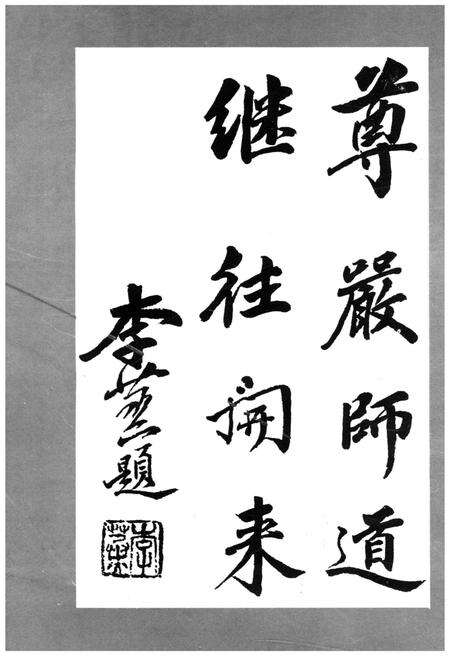 尊嚴師道
继往開来
李
題